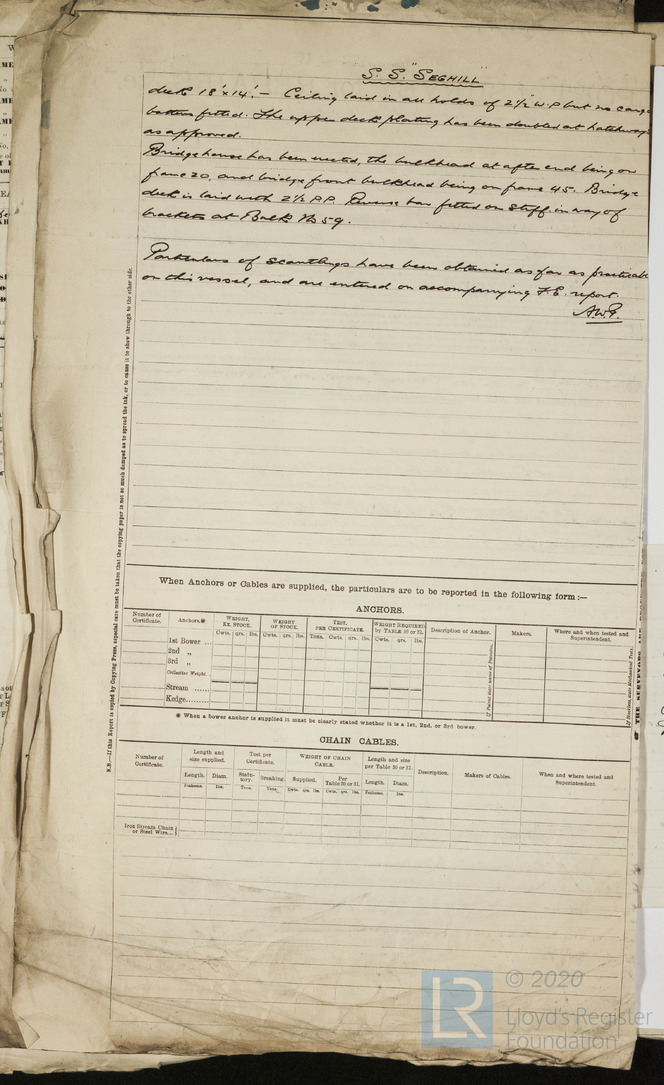 S. S. "SEGHILL"
deck 18'x14'. - Ceiling laid in all holds of 2½ W.P but no cargo
battens fitted. The upper deck plating has been doubled at hatchways
as approved.
Bridge house has been erected, the bulkhead at after end being on
frame 20, and bridge front bulkhead being on frame 45. Bridge
deck is laid with 2½ P.P. Reverse bar fitted on stiff. in way of
brackets at Bulk No 59.
Particulars of scantlings have been obtained as far as practicable
on this vessel, and are entered on accompanying F.E. report.
N.B.—If this Report is copied by Copying Press, especial care must be taken that the copying paper is not so much damped as to spread the ink, or to cause it to show through to the other side.
When Anchors or Cables are supplied, the particulars are to be reported in the following form :—
ANCHORS.
Number of Certificate. Anchors.* WEIGHT, EX. STOCK. WEIGHT OF STOCK. TEST, PER CERTIFICATE. WEIGHT REQUIRED by TABLE 30 or 31. Description of Anchor. Makers. Where and when tested and Superintendent.
Cwts. qrs. lbs. Cwts. qrs. lbs. Tons. Cwts. qrs. lbs. Cwts. qrs. lbs.
1st Bower ...
2nd "
3rd "
Collective Weight.
Stream ......
Kedge.........
* When a bower anchor is supplied it must be clearly stated whether it is a 1st, 2nd, or 3rd bower.
THE SURVEYORS ARE
CHAIN CABLES.
Number of Certificate. Length and size supplied. Test per Certificate. WEIGHT OF CHAIN CABLE. Length and size per Table 30 or 31. Description. Makers of Cables. When and where tested and Superintendent.
Length. Diam. Statutory. Breaking. Supplied. Per Table 30 or 31. Length. Diam.
Fathoms. Ins. Tons. Tons. Cwts. qrs. lbs. Cwts. qrs. lbs. Fathoms. Ins.
Iron Stream Chain
or Steel Wire...
LR
© 2020
Lloyd's Register
Foundation